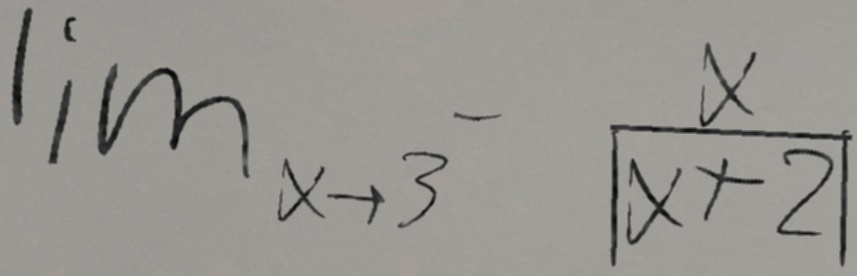 lim x→3⁻ x/|x+2|